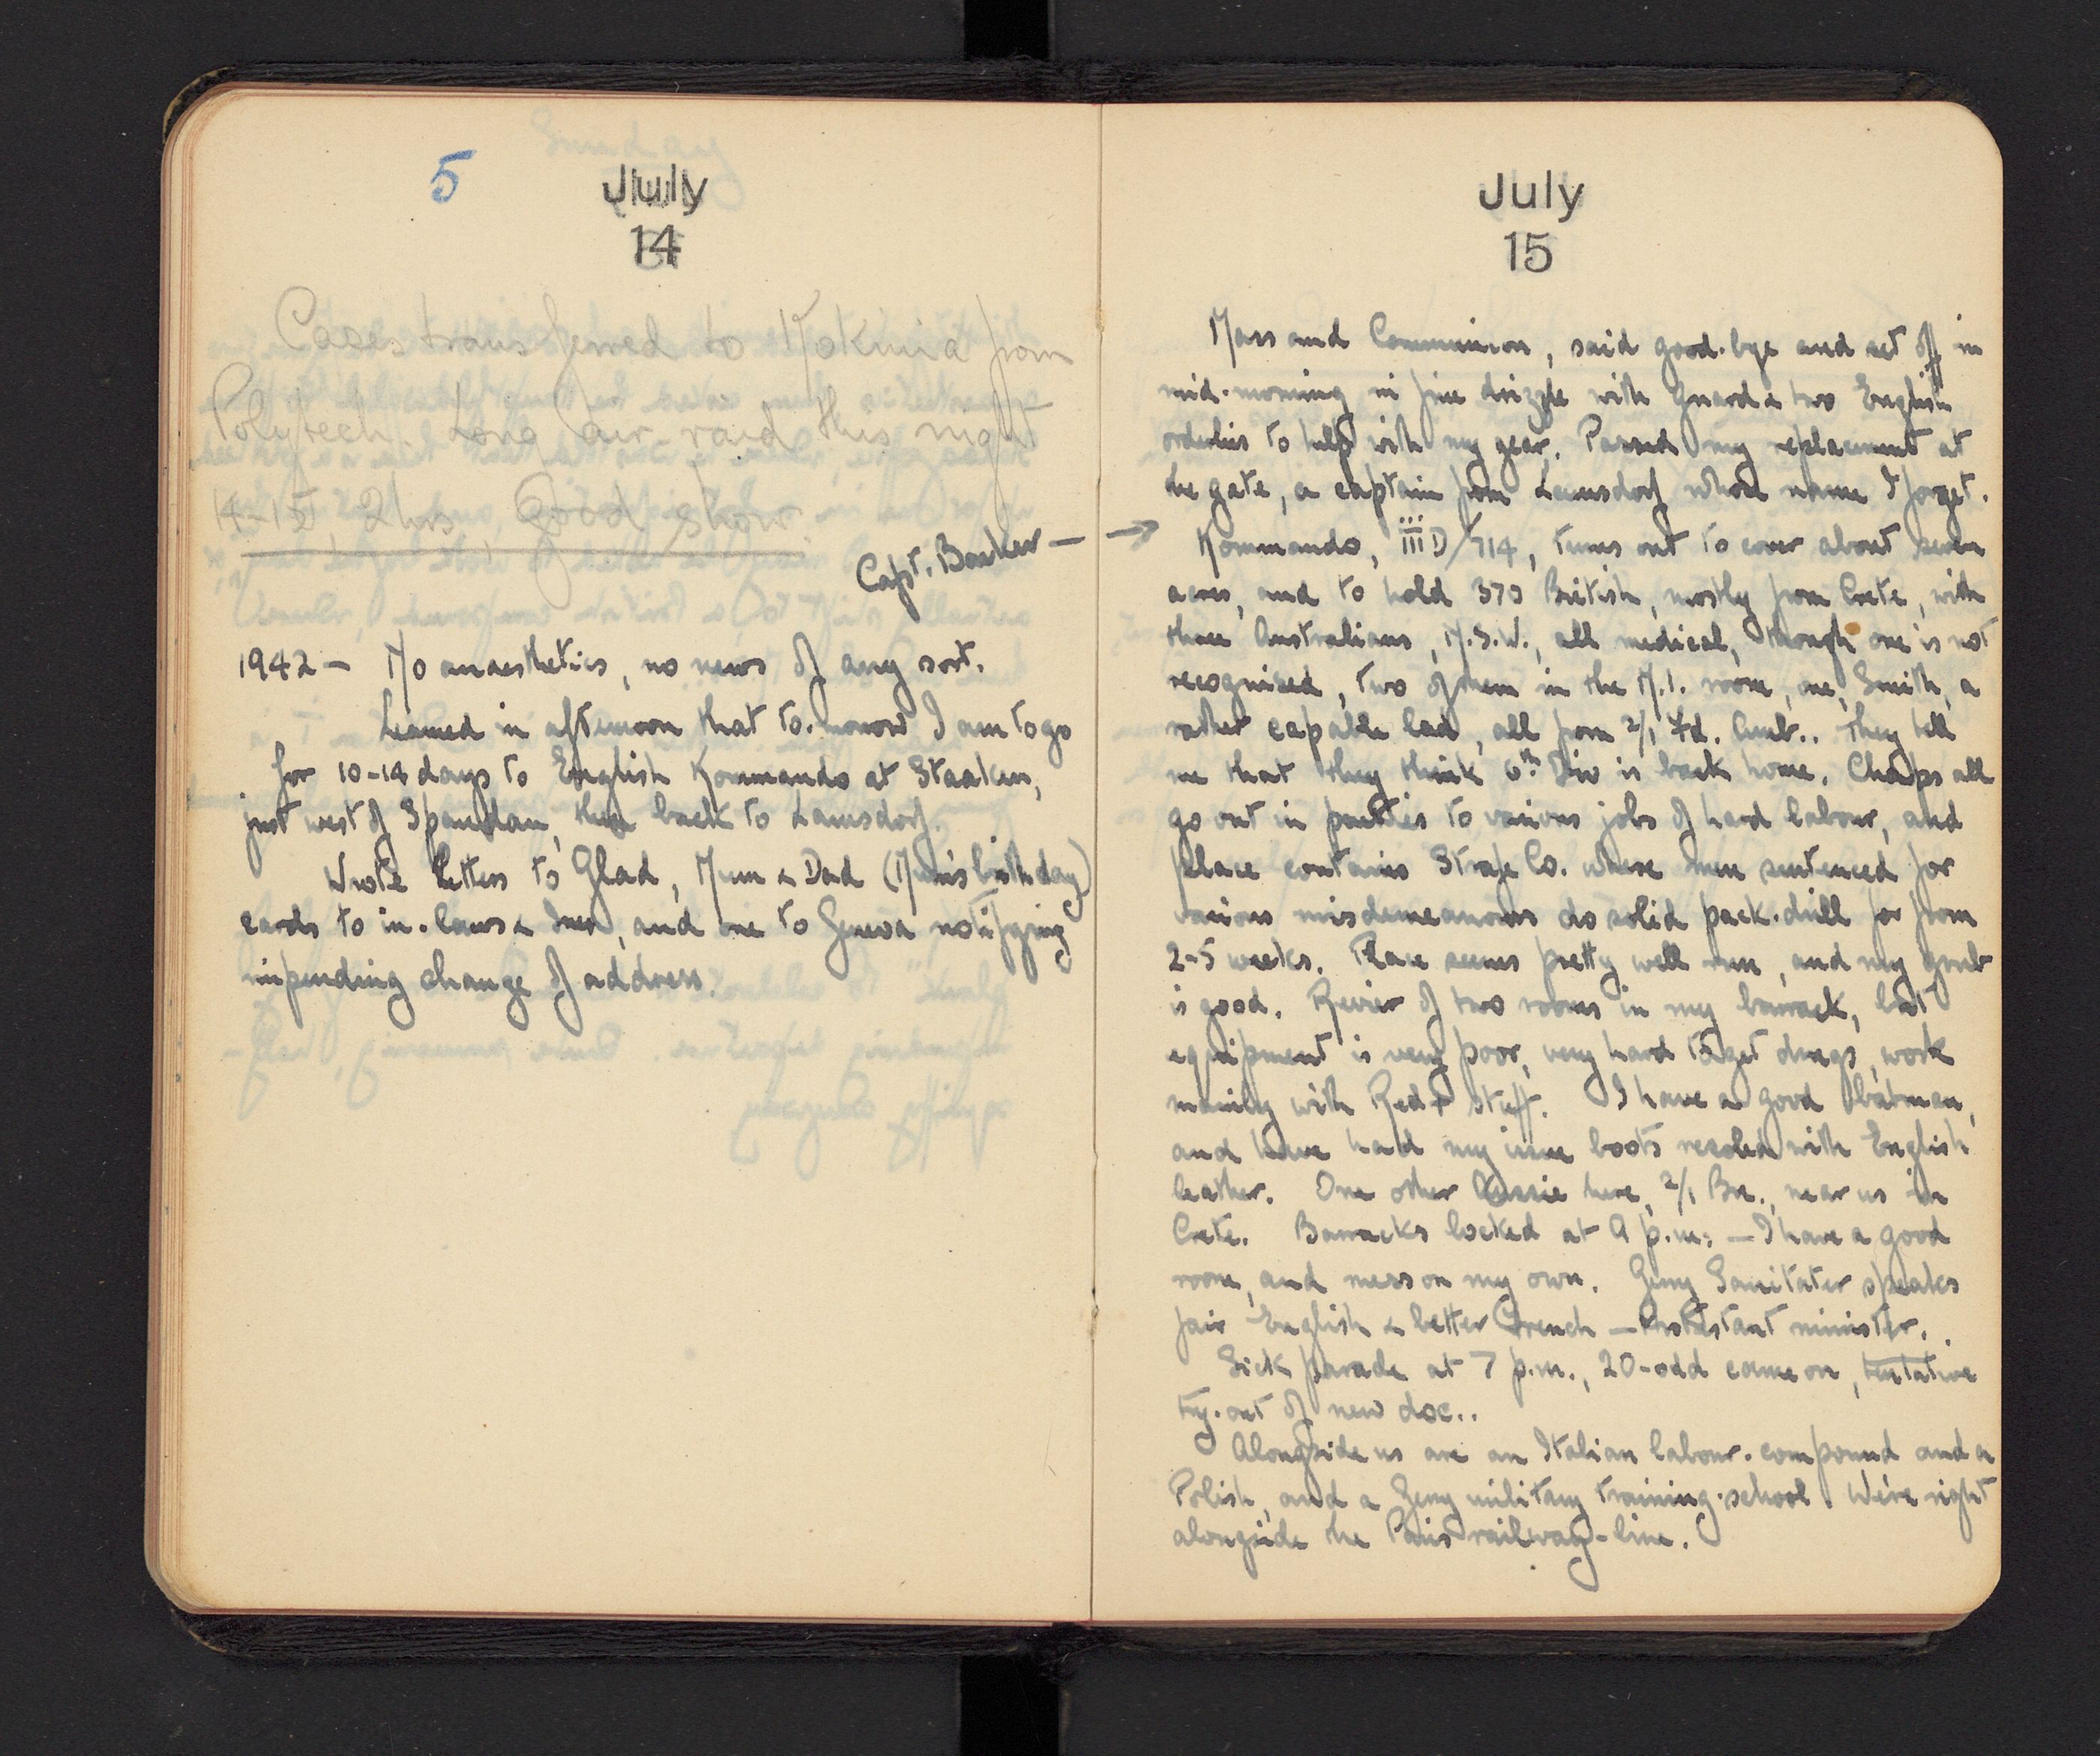 5
July
14
Cases transferred to Kokinia from
Polytech. Long air-raid this night
14-15 2 hrs. Good show.
Capt. Barker — →
1942 – No anaesthetics, no news of any sort.
Learned in afternoon that to-morrow I am to go
for 10-14 days to English Kommando at Staaken,
just west of Spandau, then back to Lamsdorf.
Wrote letters to Glad, Mum & Dad (Mum's birthday)
cards to in-laws & Inez, and one to Geneva notifying
impending change of address.
July
15
Mass and Communion, said good-bye and set off in
mid-morning in fine drizzle with Guard & two English
orderlies to help with my gear. Passed my replacement at
the gate, a captain from Lamsdorf whose name I forget.
Kommando, III D/714, turns out to cover about seven
acres, and to hold 373 British, mostly from Crete, with
three Australians, N.S.W., all medical, though one is not
recognised, two of them in the M.I. room, one, Smith, a
rather capable lad, all from 2/1 Fd. Amb.. They tell
me that they think 6th Div is back home. Chaps all
go out in parties to various jobs of hard labour, and
place contains Strafe Co. where men sentenced for
various misdemeanours do solid pack-drill for from
2-5 weeks. Place seems pretty well run, and my grub
is good. Revier of two rooms in my barrack, but
equipment is very poor, very hard to get drugs, work
mainly with Red + stuff. I have a good batman,
and have had my issue boots resoled with English
leather. One other Aussie here, 2/1 Bn., near us in
Crete. Barracks locked at 9 p.m. – I have a good
room, and mess on my own. Gerry Sanitater speaks
fair English & better French – Protestant minister.
Sick parade at 7 p.m., 20-odd came on, tentative
try-out of new doc..
Alongside us are an Italian labour-compound and a
Polish, and a Gerry military training-school. We're right
alongside the Paris railway-line.